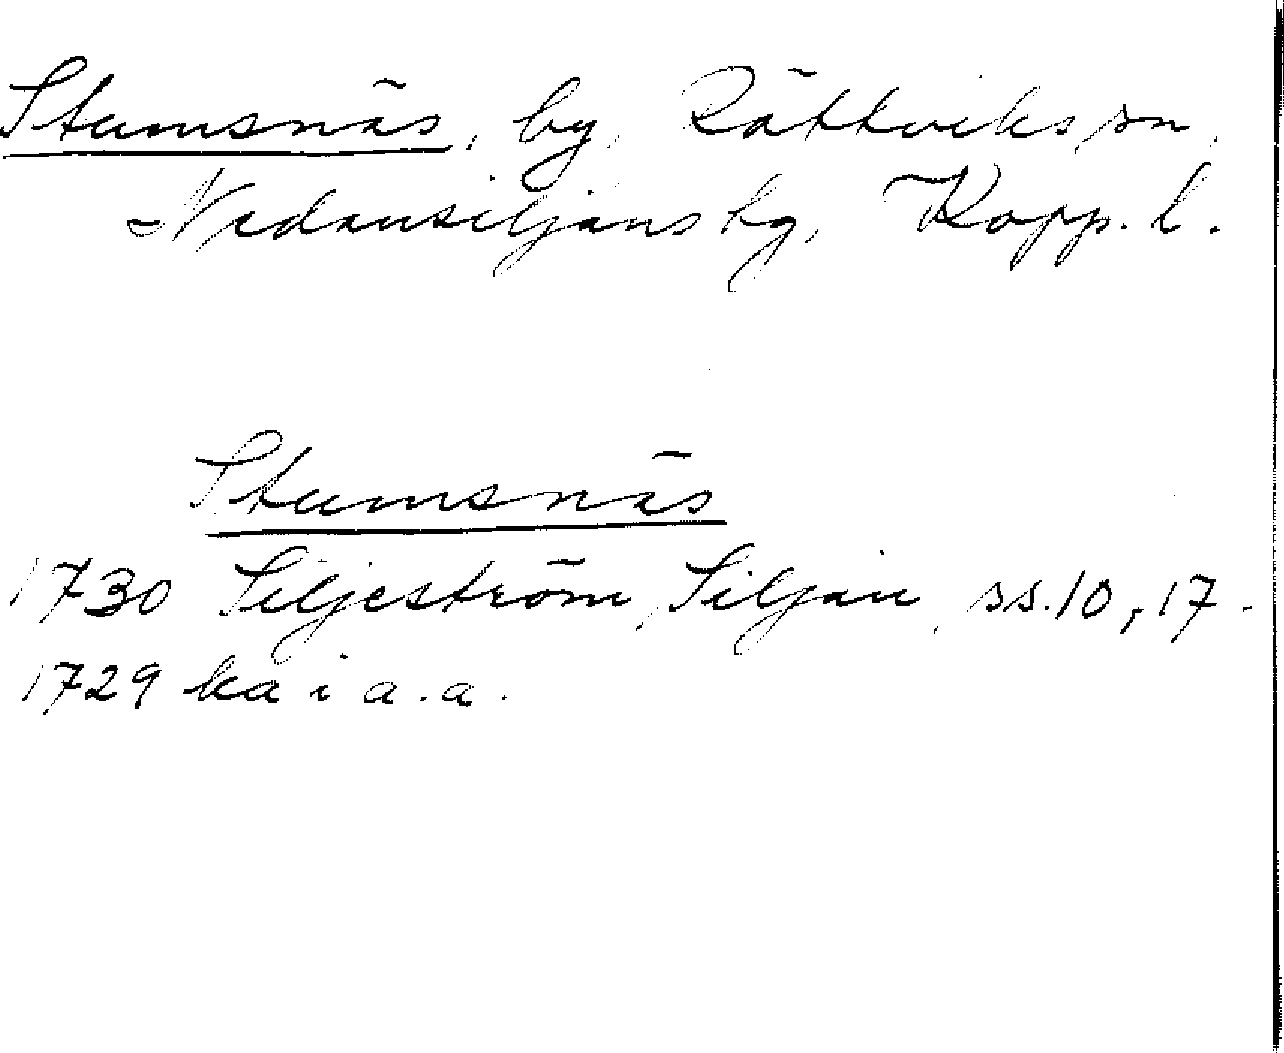 Stumsnäs, by, Rättviks sn,
Nedansiljans tg, Kopp. l.
Stumsnäs
1730 Siljeström, Siljan, ss. 10, 17.
1729 ka i a.a.